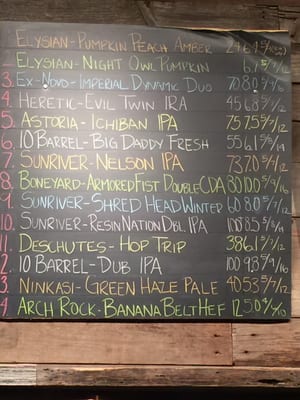 Elysian-Pumpkin Peach Amber
Elysian-Night Owl Pumpkin 6.7 5/7/12
3. Ex-Novo-Imperial Dynamic Duo 70 8.0
4. Heretic-Evil Twin IRA 45 6.8 5/7/12
5. Astoria-Ichiban IPA 75 7.5 5/7/12
6. 10 Barrel-Big Daddy Fresh 55 6.1
7. Sunriver-Nelson IPA 73 7.0 5/7/12
8. Boneyard-Armored Fist Double CDA 80 10.0
9. Sunriver-Shred Head Winter 60 8.0 5/7/12
10. Sunriver-Resin Nation Dbl IPA 100 8.5
11. Deschutes-Hop Trip 38 6.1 5/7/12
2. 10 Barrel-Dub IPA 100 9.3
3. Ninkasi-Green Haze Pale 40 5.3 5/7/12
4 Arch Rock-Banana Belt Hef 12 5.0